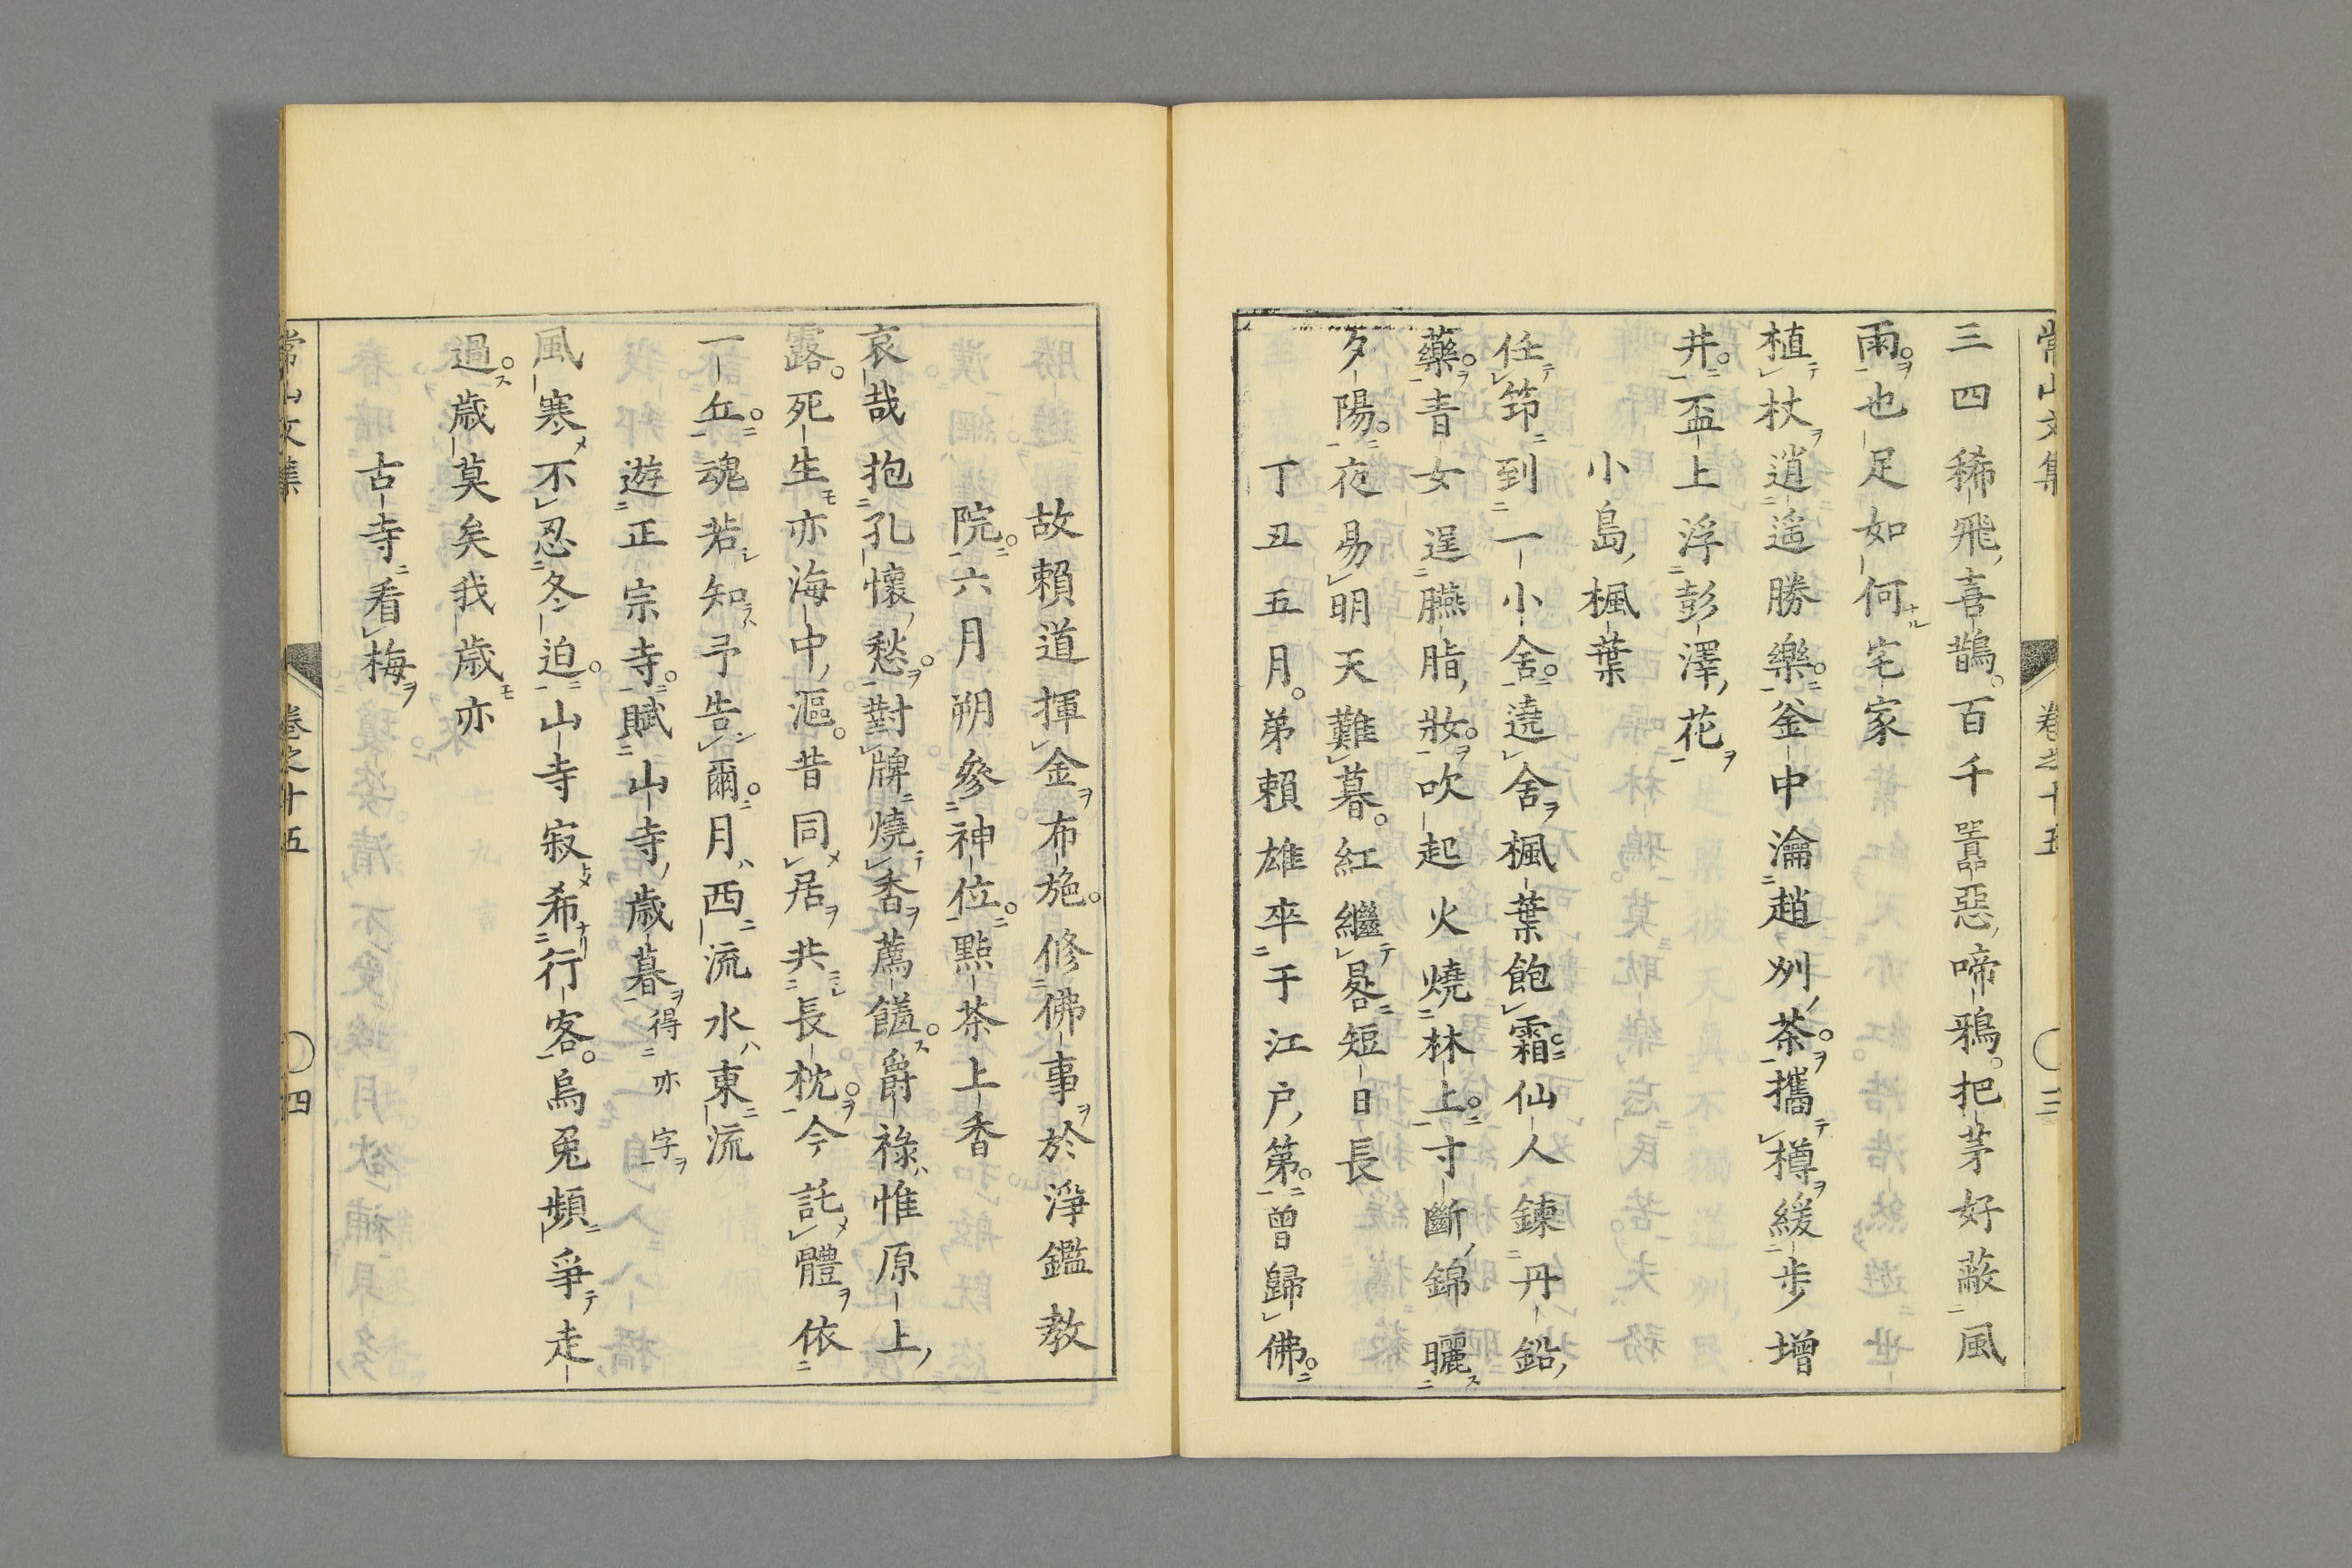 常山文集 卷之十五 〇三
三四稀飛喜鵲。百千噐惡啼鴉。把茅好蔽風
雨。也足如何宅家
植杖逍遙勝樂。釜中瀹趙州茶。攜樽緩步增
井。盃上浮彭澤花
小島楓葉
任筇到一小舍。遶舍楓葉飽霜。仙人鍊丹鉛
藥。青女逞臙脂妝。吹起火燒林上。寸斷錦曬
夕陽。夜易明天難暮。紅繼晷短日長
丁丑五月。弟賴雄卒于江戶。第。曾歸佛。
故賴道揮金布施。修佛事於淨鑑教
院。六月朔參神位。點茶上香
哀哉抱孔懷愁。對牌燒香薦饈。爵祿惟原上
露。死生亦海中漚。昔同居共長枕。今託體依
一丘。魂若知弔告爾。月西流水東流
遊正宗寺。賦山寺歲暮得亦字
風寒不忍冬迫。山寺寂希行客。烏兔頻爭走
過。歲莫矣我歲亦
古寺看梅
常山文集 卷之十五 〇四